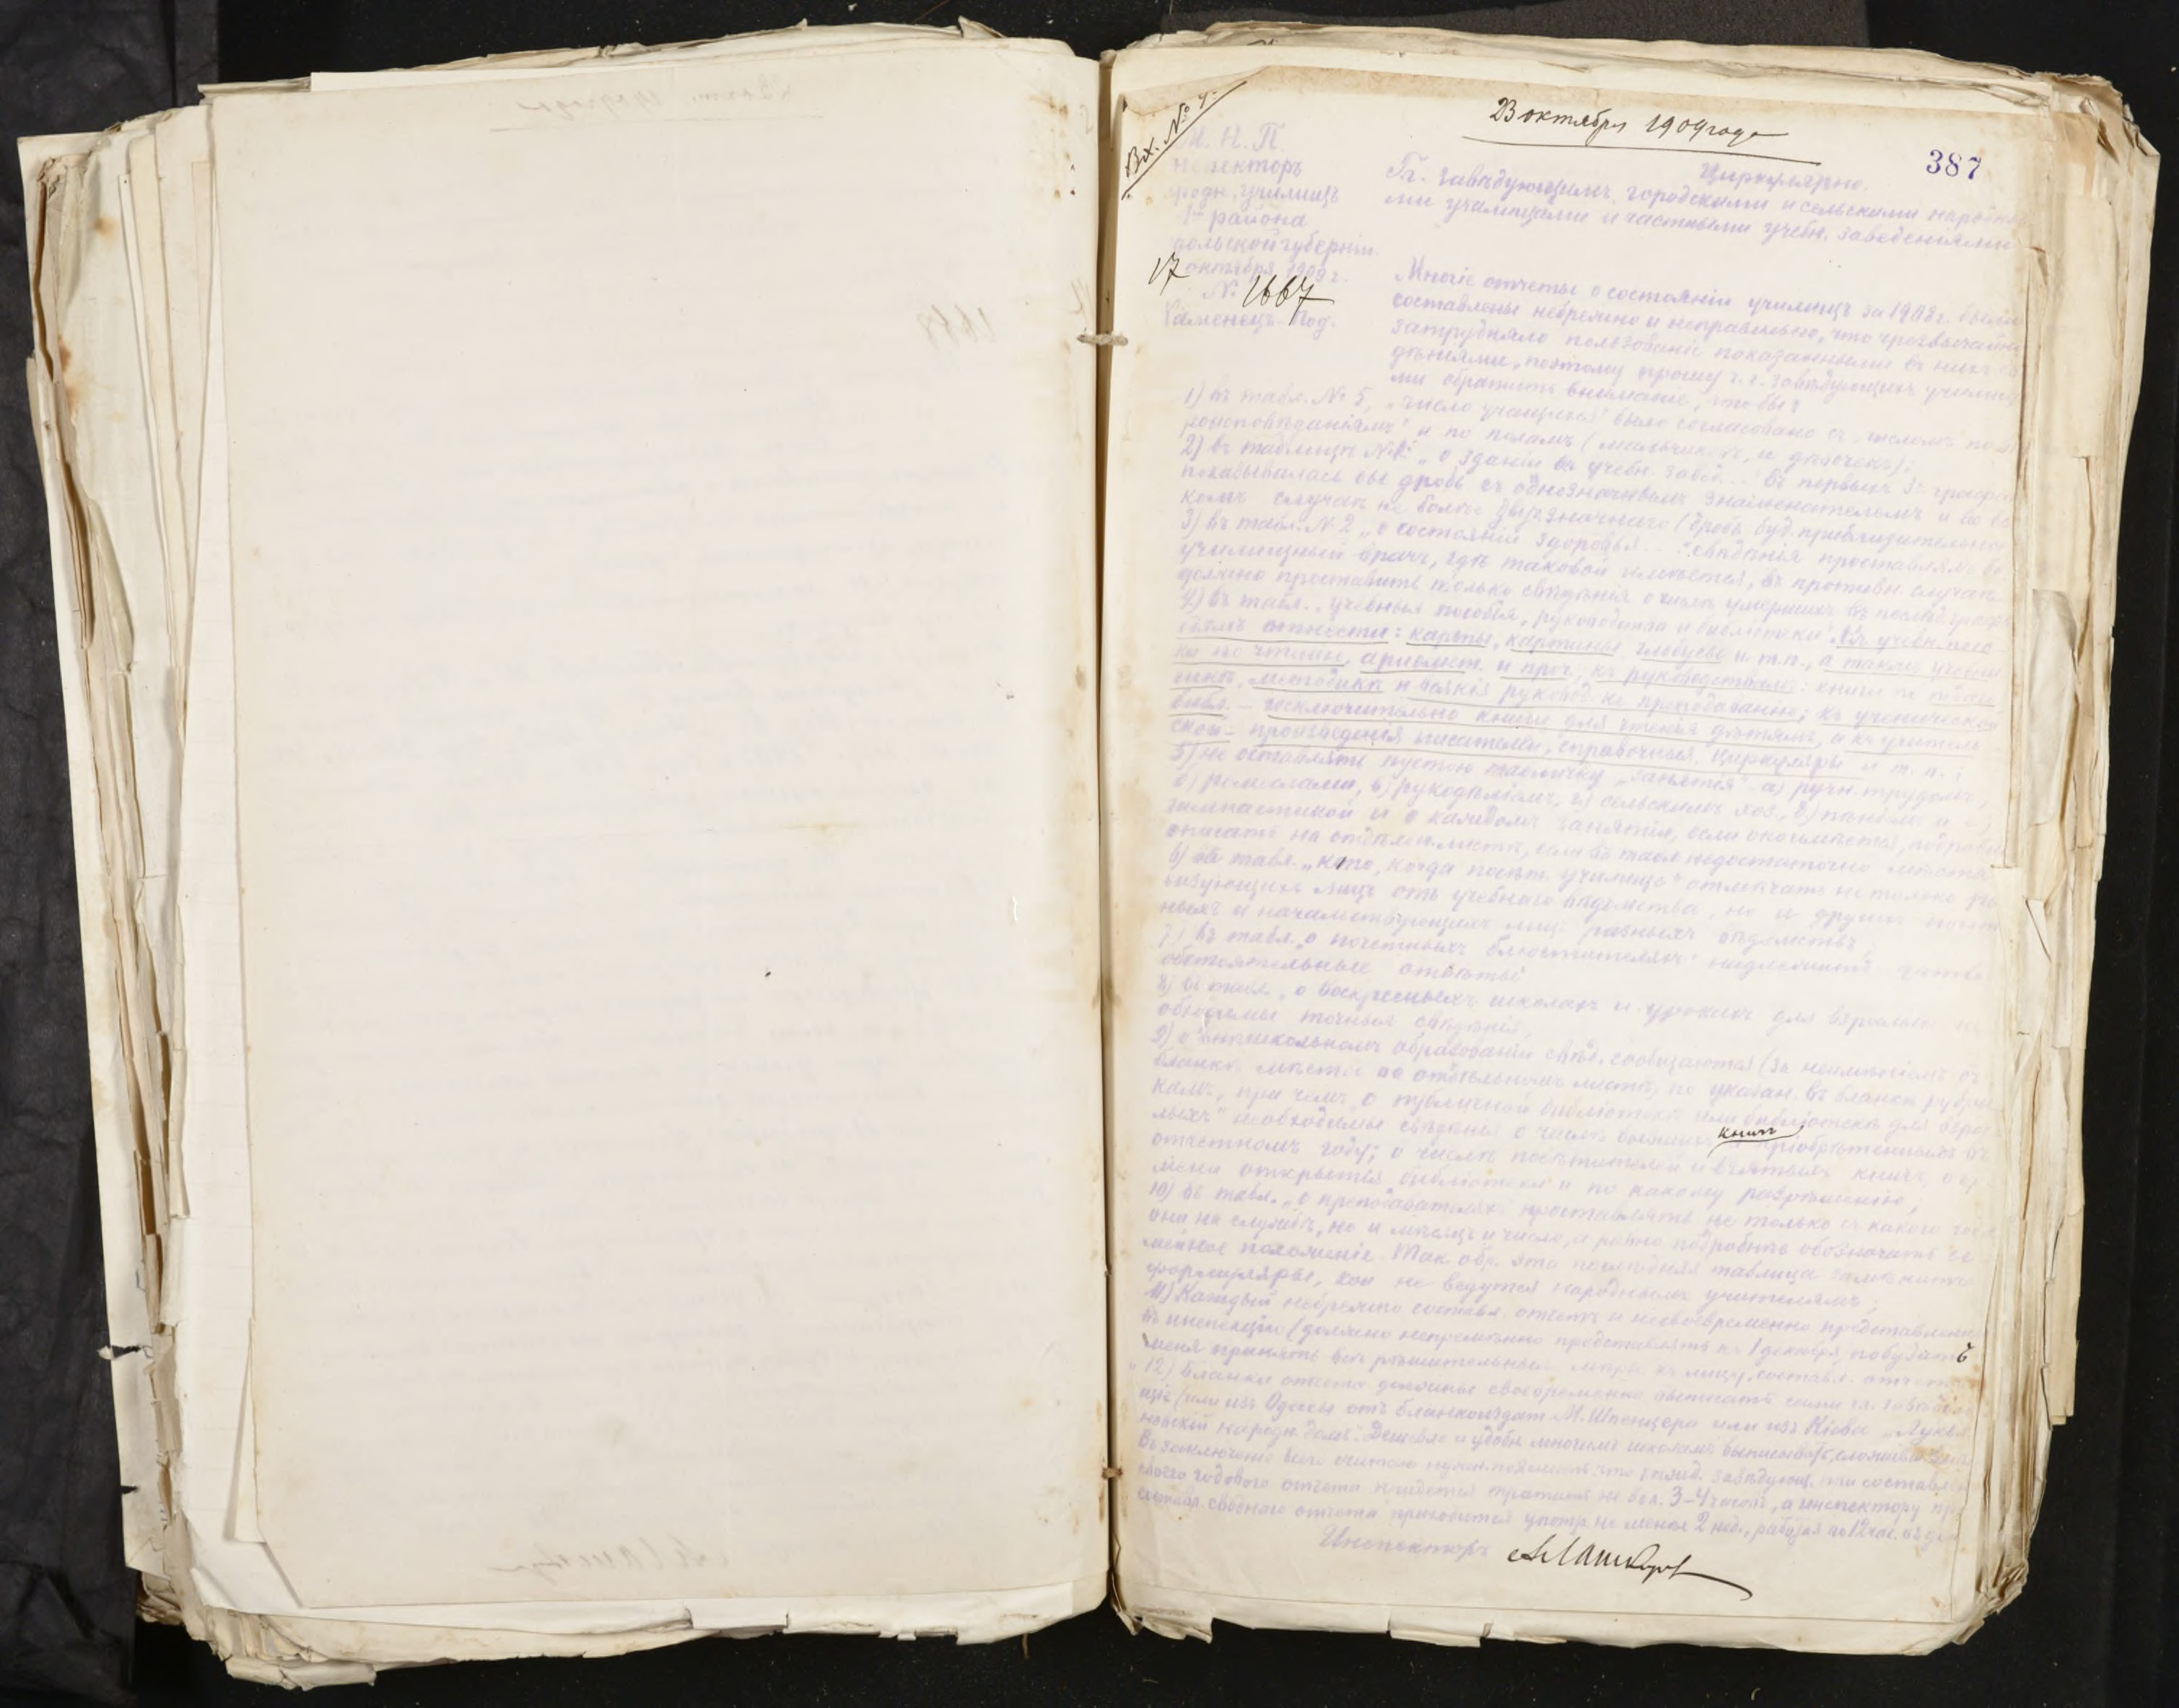 Вх. № 4.
23 октября 1909 года
387
М. Н. П.
Инспекторъ
народн. училищъ
1го района
Подольской губерніи.
17 октября 1909 г.
№ 1667
Каменецъ-Под.
Циркулярно.
Гг. Завѣдующимъ городскими и сельскими народны-
ми училищами и частными учебн. заведеніями
Многіе отчеты о состояніи училищъ за 1908 г. были
составлены небрежно и неправильно, что чрезвычайно
затрудняло пользованіе показанными въ нихъ свѣ-
дѣніями, поэтому прошу г.г. завѣдующихъ училища-
ми обратить вниманіе, что бы:
1) въ табл. № 5, „число учащихся" было согласовано съ числомъ по вѣ-
роисповѣданіямъ и по поламъ (мальчиковъ и дѣвочекъ);
2) въ таблицѣ № „о зданіи въ учебн. завед..." въ первыхъ 3х графахъ
показывалась бы дробь съ однозначнымъ знаменателемъ и во вся-
комъ случаѣ не болѣе двузначнаго (дробь буд. приблизительно
3) въ табл. № 2 „о состояніи здоровья..." свѣдѣнія проставляетъ
училищный врачъ, гдѣ таковой имѣется, въ противн. случаѣ
должно проставить только свѣдѣнія о числѣ умершихъ въ послѣд. графѣ
4) въ табл. „учебныя пособія, руководства и библіотеки". Къ учебн. посо-
біямъ отнести: карты, картины, глобусы и т.п., а также учебни-
ки по чтенію, ариѳмет. и проч.; къ руководствамъ: книги по педаго-
гикѣ, методикѣ и всякія руковод. къ преподаванію; къ ученической
библ. - исключительно книги для чтенія дѣтямъ, а къ учитель-
ской - произведенія писателей, справочныя, циркуляры и т. п.;
5) не оставлять пустою табличку „занятія" а) ручн. трудомъ,
б) ремеслами, в) рукодѣліемъ, г) сельскимъ хоз., д) пѣніемъ и
гимнастикой и о каждомъ занятіи, если оно имѣется, подробно
описать на отдѣльн. листѣ, если въ табл. недостаточно мѣста;
6) въ табл. „кто, когда посѣт. училище" отмѣчать не только ре-
визующихъ лицъ отъ учебнаго вѣдомства, но и другихъ почет-
ныхъ и начальствующихъ лицъ разныхъ вѣдомствъ;
7) въ табл. „о почетныхъ блюстителяхъ" надлежитъ
обстоятельные отвѣты;
8) въ табл. „о воскресныхъ школахъ и урокахъ для взрослыхъ не-
обходимы точныя свѣдѣнія;
9) о внѣшкольномъ образованіи свѣд. сообщаются (за неимѣніемъ въ
бланкѣ мѣста на отдѣльномъ листѣ, по указан. въ бланкѣ рубри-
камъ, при чемъ „о публичной библіотекѣ или библіотекѣ для взрос-
лыхъ" необходимы свѣдѣнія о числѣ бывшихъ книгъ и пріобрѣтенныхъ въ
отчетномъ году; о числѣ посѣтителей и взятыхъ книгъ, о вре-
мени открытія библіотеки и по какому разрѣшенію;
10) въ табл. „о преподавателяхъ" проставлять не только съ какого года
они на службѣ, но и мѣсяцъ и число, а равно подробнѣе обозначить се-
мейное положеніе. Так. обр. эта послѣдняя таблица замѣнитъ
формуляры, кои не ведутся народнымъ учителямъ;
11) Каждый небрежно составл. отчетъ и несвоевременно представленный
въ инспекцію (должно непремѣнно представлять къ 1 декабря, побудитъ
меня принять болѣе рѣшительныя мѣры къ лицу, составл. отчетъ
12) Бланки отчета должны своевременно выписать сами гг. завѣдую-
щіе (или изъ Одессы отъ бланкоиздат. М. Шпенцера или изъ Кіева „Лукья-
новскій народн. домъ". Дешевле и удобн. многимъ школамъ выписывать, сложив
Въ заключеніе всего считаю нужн. пояснить, что кажд. завѣдующ. при составлен.
своего годового отчета придется тратить не бол. 3-4 часовъ, а инспектору при
составл. своднаго отчета приходится употр. не менѣе 2 нед., работая по 12 час. въ день
Инспекторъ